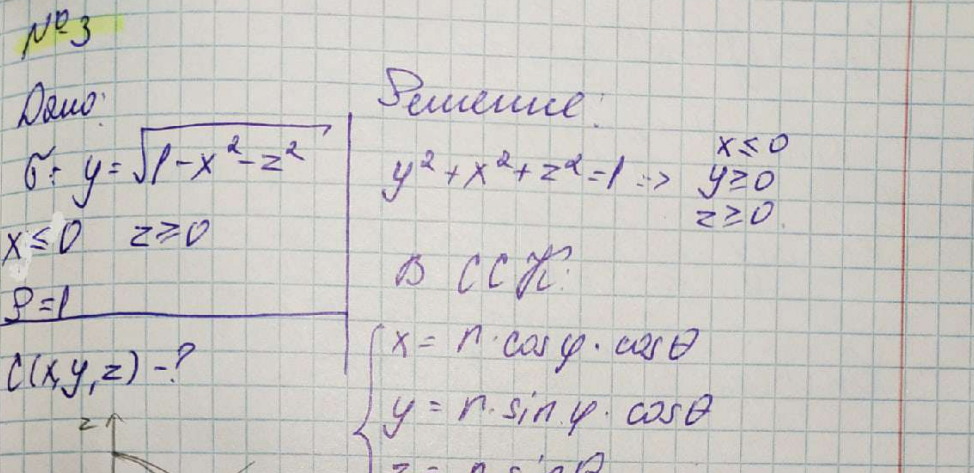 №3
Дано:
σ: y = √1-x²-z²
x ≤ 0 z ≥ 0
ρ = 1
C(x,y,z) - ?
z
Решение:
y² + x² + z² = 1 => x ≤ 0
y ≥ 0
z ≥ 0
В ССК:
x = r · cosφ · cosθ
y = r · sinφ · cosθ
z = r sinθ